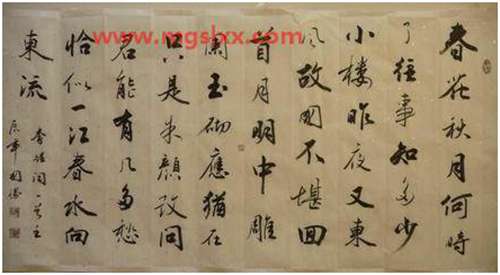 www.mgslxx.com
春花秋月何時
了往事知多少
小樓昨夜又東
风故國不堪回
首月明中雕
阑玉砌應猶在
只是朱顏改問
君能有几多愁
恰似一江春水向
東流